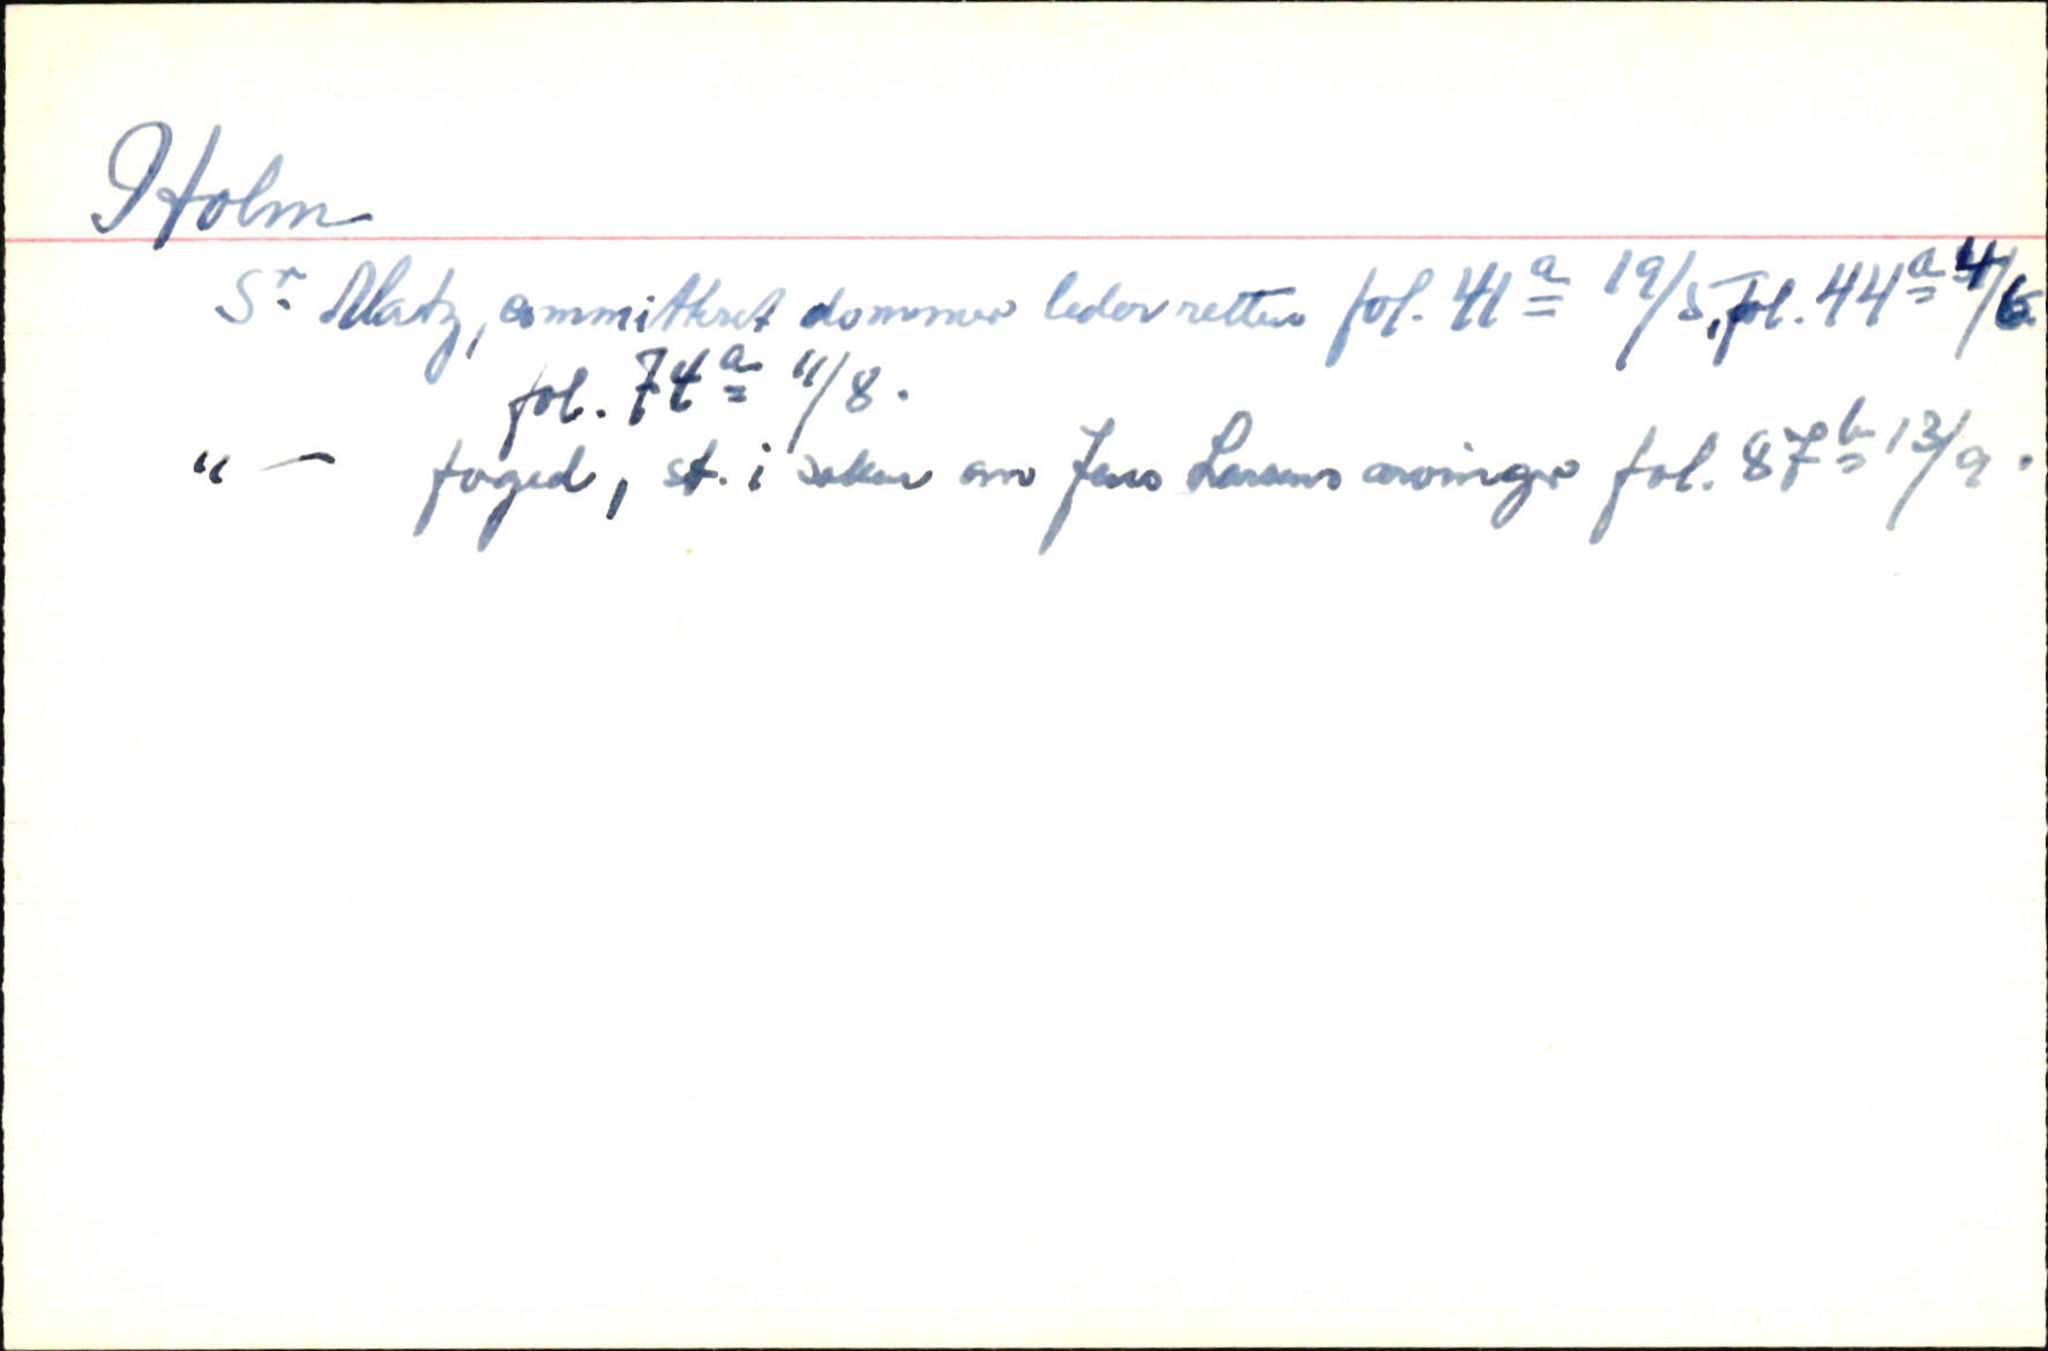 Holm
Sr. Matz, committeret dommer leder retten fol. 41a 19/5, fol. 44a 4/6
fol. 74a 11/8.
"— foged, st. i saken om Jens Larsens arvinger fol. 87b 13/9.